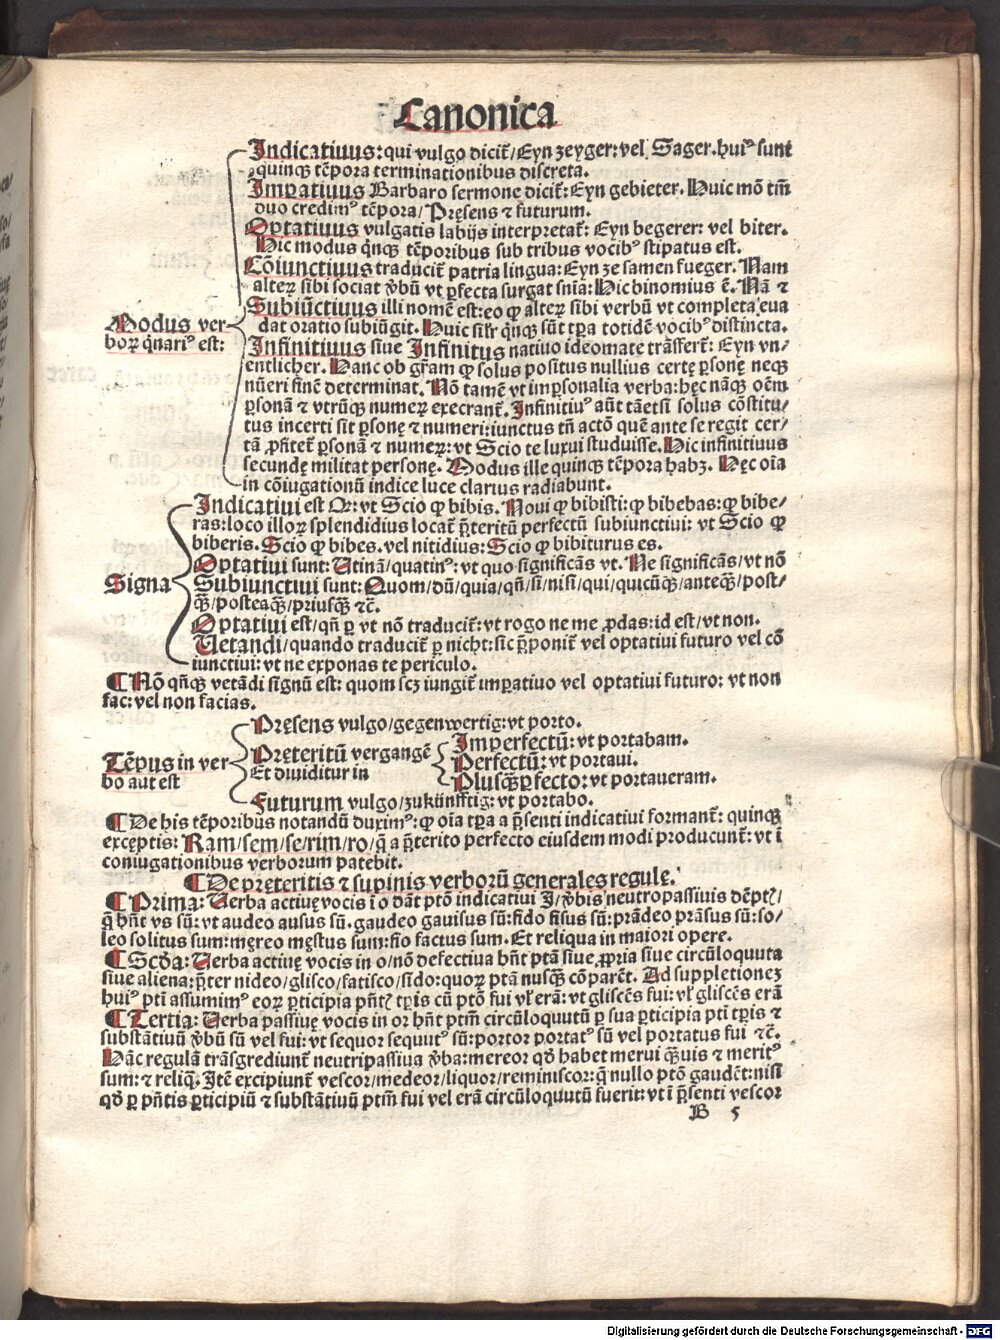 Canonica
Indicatiuus: qui vulgo dicit᷑/Eyn zeyger: vel Sager. huiꝰ sunt
quinqꝫ tēpora terminationibus discreta.
Impatiuus Barbaro sermone dicit᷑: Eyn gebieter. Huic mō tm̄
duo credimꝰ tēpora/Pręsens ⁊ futurum.
Optatiuus vulgatis labijs interpretat᷑: Eyn begerer: vel biter.
Hic modus q̄nqꝫ tēporibus sub tribus vocibꝰ stipatus est.
Cōiunctiuus traducit᷑ patria lingua: Eyn ze samen fueger. Nam
alteꝝ sibi sociat v̄bū vt ꝑfecta surgat sn̄ia: Hic binomius ē. Nā ⁊
Subiūctiuus illi nomē est: eo ꝙ alteꝝ sibi verbū vt completa eua
dat oratio subiūgit. Huic sil'r q̄nqꝫ sūt tp̄a totidē vocibꝰ distincta.
Modus ver-
boꝝ q̄nariꝰ est:
Infinitiuus siue Infinitus natiuo ideomate trāsfert᷑: Eyn vn/
entlicher. Hanc ob gr̄am ꝙ solus positus nullius certę ꝑsonę neqꝫ
nūeri finē determinat. Nō tamē vt imꝑsonalia verba: hęc nāqꝫ oēm
ꝑsonā ⁊ vtrūqꝫ numeꝝ execrant᷑. Infinitiuꝰ aūt tāetsi solus cōstitu/
tus incerti sit ꝑsonę ⁊ numeri: iunctus tn̄ actō quē ante se regit cer-
tā ꝓfitet᷑ ꝑsonā ⁊ numeꝝ: vt Scio te luxui studuisse. Hic infinitiuus
secundę militat personę. Modus ille quinqꝫ tēpora habꝫ. Hęc oīa
in cōiugationū indice luce clarius radiabunt.
Signa
Indicatiui est Qꝛ: vt Scio ꝙ bibis. Noui ꝙ bibisti: ꝙ bibebas: ꝙ bibe/
ras: loco illoꝝ splendidius locat᷑ p̄teritū perfectū subiunctiui: vt Scio ꝙ
biberis. Scio ꝙ bibes. vel nitidius: Scio ꝙ bibiturus es.
Optatiui sunt: Utinā/quatinꝰ: vt quo significās vt. Ne significās/vt nō
Subiunctiui sunt: Quom/dū/quia/qn̄/si/nisi/qui/quicūqꝫ/anteq̄ꝫ/post-
q̄ꝫ/posteaq̄ꝫ/priusq̄ꝫ ⁊c̄.
Optatiui est/qn̄ ꝑ vt nō traducit᷑: vt rogo ne me ꝓdas: id est/vt non.
Uetandi/quando traducit᷑ ꝑ nicht: sic p̄ponit᷑ vel optatiui futuro vel cō
iunctiui: vt ne exponas te periculo.
¶Nō qn̄qꝫ vetādi signū est: quom scꝫ iungit᷑ imꝑatiuo vel optatiui futuro: vt non
fac: vel non facias.
Tēpus in ver-
bo aut est
Pręsens vulgo/gegenwertig: vt porto.
Pręteritū vergangē
Et diuiditur in
Imperfectū: vt portabam.
Perfectū: vt portaui.
Plusq̄ꝫꝑfecto: vt portaueram.
Futurum vulgo/zukünfftig: vt portabo.
¶De his tēporibus notandū duximꝰ: ꝙ oīa tp̄a a p̄senti indicatiui formant᷑: quinqꝫ
exceptis: Ram/sem/se/rim/ro/q̄ a p̄terito perfecto eiusdem modi producunt᷑: vt ī
coniugationibus verborum patebit.
¶De pręteritis ⁊ supinis verborū generales regulę.
¶Prima: Uerba actiuę vocis ī o dāt ptō indicatiui I/v̄bis neutropassiuis dēpt᷑/
q̄ hn̄t vs sū: vt audeo ausus sū. gaudeo gauisus sū: fido fisus sū: prādeo prāsus sū: so/
leo solitus sum: męreo męstus sum: fio factus sum. Et reliqua in maiori opere.
¶Scd̄a: Uerba actiuę vocis in o/nō defectiua hn̄t ptā siue ꝓpria siue circūloquuta
siue aliena: p̄ter nideo/glisco/fatisco/sido: quoꝝ ptā nusqꝫ cōparēt. Ad suppletionez
huiꝰ pti assumimꝰ eoꝝ ꝑticipia pn̄t᷑ tp̄is cū ptō fui vl' erā: vt gliscēs fui: vl' gliscēs erā
¶Tertia: Uerba passiuę vocis in or hn̄t ptm̄ circūloquutū ꝑ sua ꝑticipia pti tp̄is ⁊
substātiuū v̄bū sū vel fui: vt sequor sequutꝰ sū: portor portatꝰ sū vel portatus fui ⁊c̄.
Hāc regulā trāsgrediunt᷑ neutripassiua v̄ba: mereor qd̄ habet merui q̄ꝫuis ⁊ meritꝰ
sum: ⁊ reliq̄. Itē excipiunt᷑ vescor/medeor/liquor/reminiscor: q̄ nullo ptō gaudēt: nisi
qd̄ ꝑ pn̄tis ꝑticipiū ⁊ substātiuū ptm̄ fui vel erā circūloquutū fuerit: vt ī p̄senti vescor
B 5
Digitalisierung gefördert durch die Deutsche Forschungsgemeinschaft - DFG